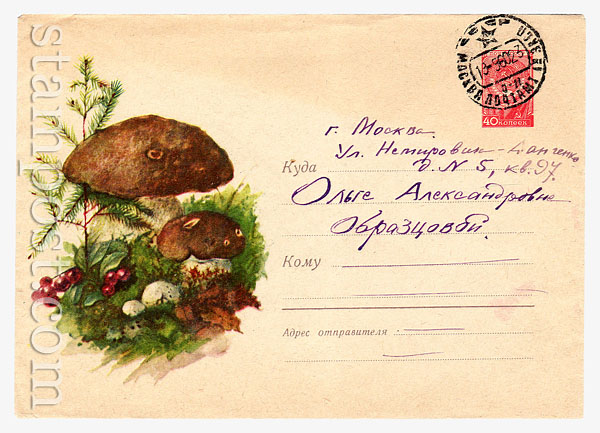 МОСКВА ПОЧТАМТ
40 КОПЕЕК
г. Москва
Ул. Немирович-Данченко
Куда д. N 5, кв. 97
Ольге Александровне
Образцовой
Кому
Адрес отправителя
stampost.com